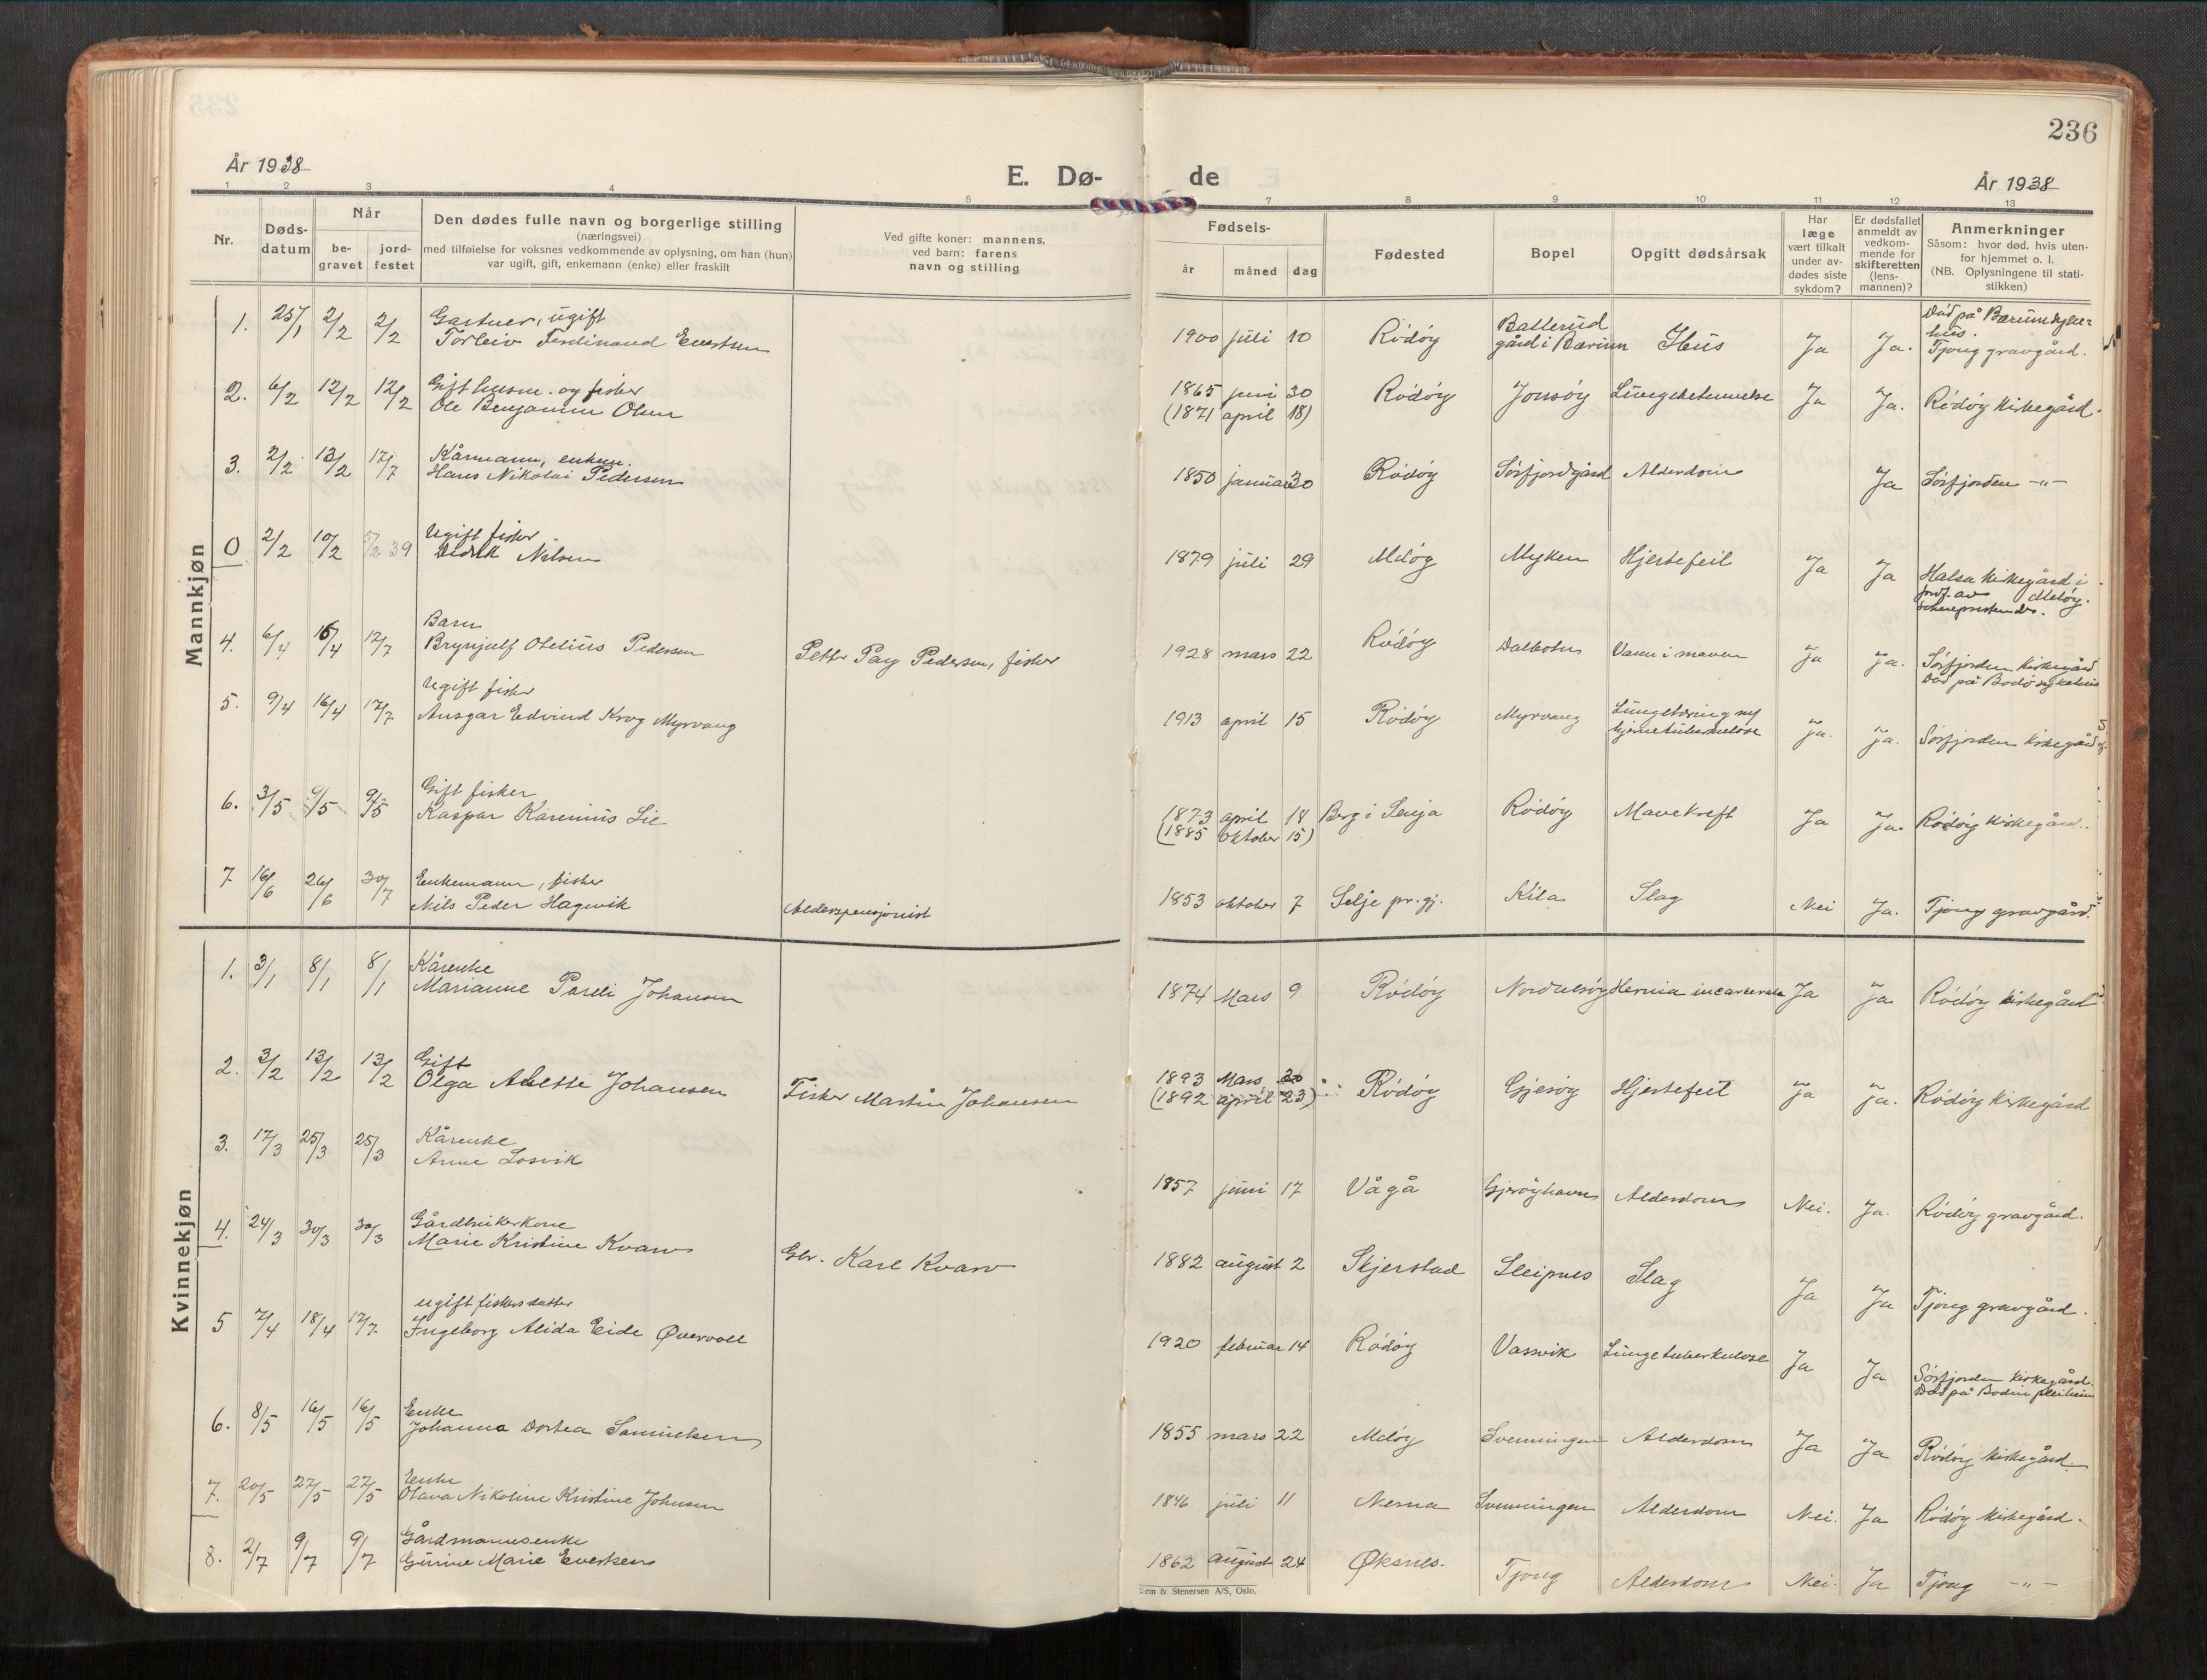 236
År 1938
E. Dø-
de
År 1938
1 2 3 4 5 7 8 9 10 11 12 13
Nr.
Døds-
datum
Når
be-
gravet
jord-
festet
Den dødes fulle navn og borgerlige stilling
(næringsvei)
med tilføielse for voksnes vedkommende av oplysning, om han (hun)
var ugift, gift, enkemann (enke) eller fraskilt
Ved gifte koner: mannens,
ved barn: farens
navn og stilling
Fødsels-
år måned dag
Fødested
Bopel
Opgitt dødsårsak
Har
læge
vært tilkalt
under av-
dødes siste
sykdom?
Er dødsfallet
anmeldt av
vedkom-
mende for
skifteretten
(lens-
mannen)?
Anmerkninger
Såsom: hvor død, hvis uten-
for hjemmet o. l.
(NB. Oplysningene til stati-
stikken)
Mannkjøn
1. 25/1 2/2 2/2 Gartner, ugift
Torleiv Ferdinand Evertsen
1900 juli 10 Rödöy Ballerud
gård i Bærum Ja Ja.
Död på Bærum syke-
hus.
Tjong gravgård.
2. 6/2 12/2 12/2 Gift husm. og fisker
Ole Benjamin Olsen
1865 juni 30 Rödöy Jonsöy Lungebetennelse Ja Ja. Rödöy kirkegård.
(1871 april 18)
3. 2/2 13/2 17/7 Kårmann, enkem.
Hans Nikolai Pedersen
1850 januar 30 Rödöy Sörfjordgård Alderdom Ja Sörfjorden -"-
0 2/2 10/2 5/2 39 Ugift fisker
Nilsen
1879 juli 29 Melöy Myken Hjertefeil Ja Ja Halsa kirkegård i
Melöy.
4. 6/4 16/4 17/7 Barn
Brynjulf Otelius Pedersen Petter Pay Pedersen, fisker
1928 mars 22 Rödöy Dalbotn Vann i maven Ja Ja. Sörfjorden kirkegård
Död på Bodö sykehus
5. 9/4 16/4 17/7 Ugift fisker
Ansgar Edvind Krog Myrvang
1913 april 15 Rödöy Myrvang Lungetæring og
hjernetuberkulose Ja. Ja. Sörfjorden kirkegård
6. 3/5 9/5 9/5 Gift fisker
Kaspar Karenius Lie
1873 april 18 Berg i Senja Rödöy Mavekreft Ja Ja. Rödöy kirkegård.
(1885 oktober 15)
7 16/6 26/6 30/7 Enkemann, fisker
Nils Peder Hagevik Alderspensjonist
1853 oktober 7 Selje pr.gj. Kila Slag Nei Ja. Tjong gravgård.
Kvinnekjøn
1. 3/1 8/1 8/1 Kårenke
Marianne Pareli Johansen
1874 Mars 9 Rödöy Nordnesöy Hernia incarcerata Ja Ja Rödöy kirkegård
2. 3/2 13/2 13/2 Gift
Olga Alette Johansen Fisker Martin Johansen
1893 Mars 20 Rödöy Gjesöy Hjertefeil Ja Ja. Rödöy kirkegård
(1892 april 23)
3. 17/3 25/3 25/3 Kårenke
Anne Losvik
1857 juni 17 Vågå Gjeröyhavn Alderdom Nei. Ja. Rödöy gravgård.
4. 24/3 30/3 30/3 Gårdbrukerkone
Marie Kristine Kvarv Gbr. Karl Kvarv
1882 august 2 Skjerstad Sleipnes Slag Ja Ja Tjong gravgård.
5 7/4 18/4 17/7 ugift fiskersdatter
Ingeborg Alida Eide Øvervoll
1920 februar 14 Rödöy Vassvik Lungetuberkulose Ja Ja Sörfjorden kirkegård.
Död på Bodin pleiheim
6. 8/5 16/5 16/5 Enke
Johanna Dortea Samuelsen
1855 mars 22 Melöy Svenningen Alderdom Ja Ja Rödöy kirkegård
7. 20/5 27/5 27/5 Enke
Olava Nikoline Kristine Johnsen
1846 juli 11 Nesna Svenningen Alderdom Nei. Ja Rödöy kirkegård.
8. 2/7 9/7 9/7 Gårdmannsenke
Gurine Marie Evertsen
1862 august 24 Øksnes. Tjong Alderdom Nei. Ja Tjong -"-
Sem & Stenersen A/S, Oslo.